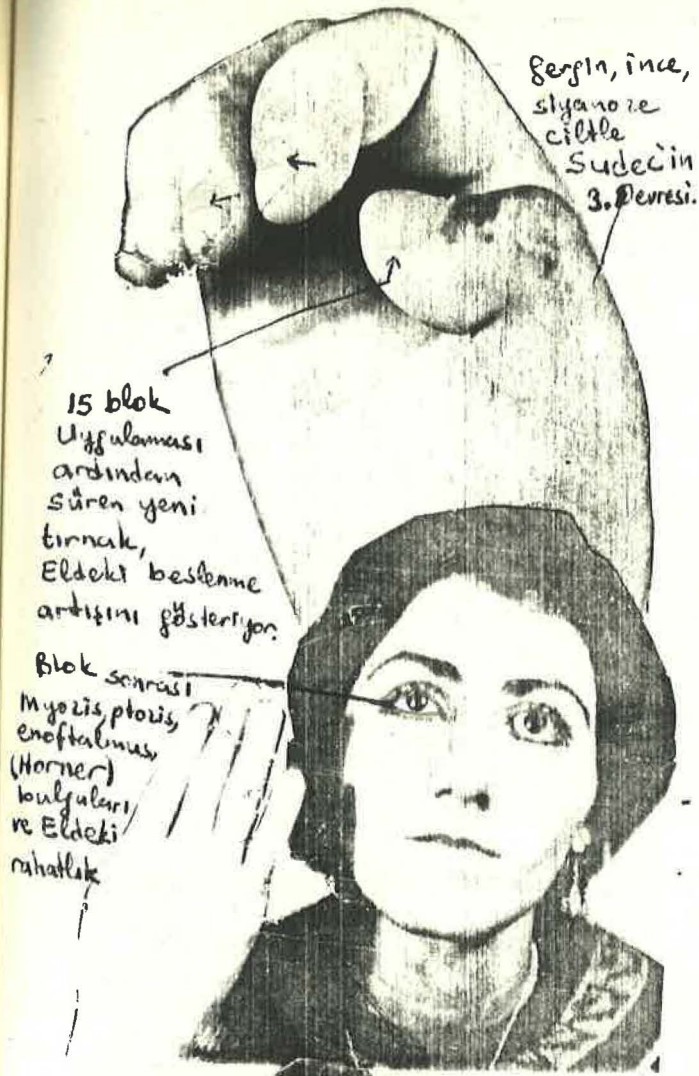 gergin, ince,
siyanoze
ciltle
Sudeck'in
3. Devresi.
15 blok
Uygulaması
ardından
süren yeni
tırnak,
Eldeki beslenme
artışını gösteriyor.
Blok sonrası
Myozis, ptozis,
enoftalmus,
(Horner)
bulguları
ve Eldeki
rahatlık